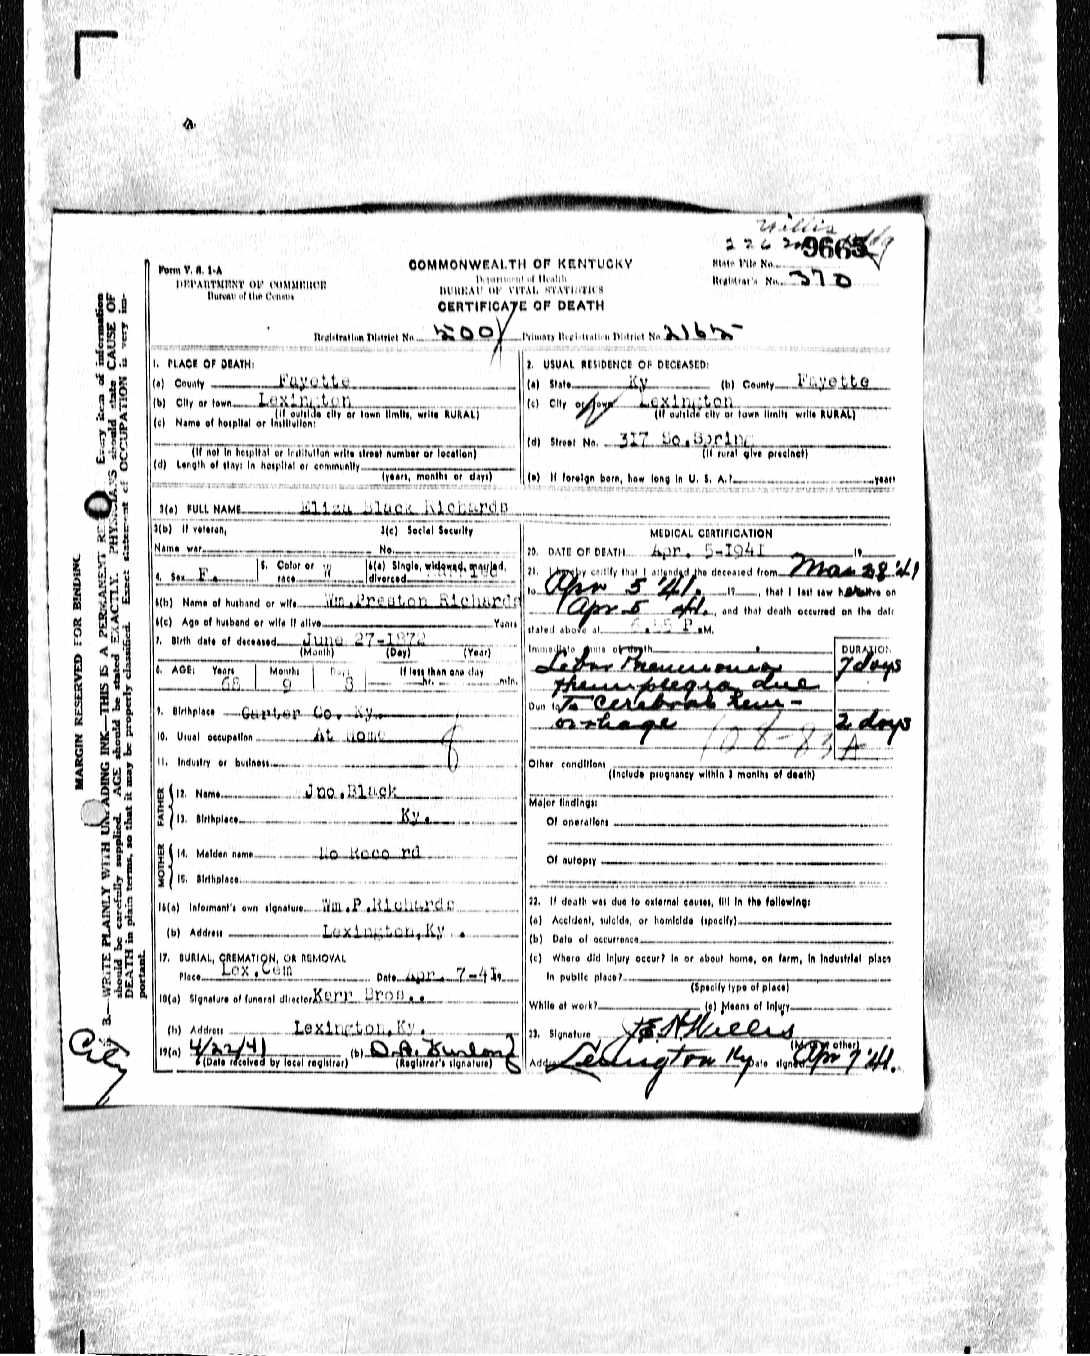 Willis
9665
State File No.
Registrar's No. 370
Form V. S. 1-A
DEPARTMENT OF COMMERCE
Bureau of the Census
COMMONWEALTH OF KENTUCKY
Department of Health
BUREAU OF VITAL STATISTICS
CERTIFICATE OF DEATH
Registration District No. 500 Primary Registration District No. 2162
MARGIN RESERVED FOR BINDING
B.—WRITE PLAINLY WITH UNFADING INK—THIS IS A PERMANENT Every item of information
should be carefully supplied. AGE should be stated EXACTLY. PHYSICIANS should state CAUSE OF
DEATH in plain terms, so that it may be properly classified. Exact statement of OCCUPATION is very im-
portant.
City
1. PLACE OF DEATH:
(a) County Fayette
(b) City or town Lexington
(If outside city or town limits, write RURAL)
(c) Name of hospital or Institution:
(If not in hospital or institution write street number or location)
(d) Length of stay: in hospital or community
(years, months or days)
2. USUAL RESIDENCE OF DECEASED:
(a) State Ky (b) County Fayette
(c) City or town Lexington
(If outside city or town limits write RURAL)
(d) Street No. 317 So.Spring
(If rural give precinct)
(e) If foreign born, how long in U. S. A.? years
3(a) FULL NAME Eliza Black Richards
3(b) If veteran, 3(c) Social Security
Name war No.
4. Sex F. 5. Color or race W 6(a) Single, widowed, married, divorced Married
6(b) Name of husband or wife Wm.Preston Richards
6(c) Age of husband or wife if alive Years
7. Birth date of deceased June 27-1872
(Month) (Day) (Year)
8. AGE: Years Months Days If less than one day
68 9 8 hr. min.
9. Birthplace Carter Co. Ky.
10. Usual occupation At Home
11. Industry or business
FATHER
12. Name Jno.Black
13. Birthplace Ky.
MOTHER
14. Maiden name No Record
15. Birthplace
16(a) Informant's own signature Wm.P.Richards
(b) Address Lexington,Ky.
17. BURIAL, CREMATION, OR REMOVAL
Place Lex.Cem Date Apr. 7-41
18(a) Signature of funeral director Kerr Bros.
(b) Address Lexington,Ky.
19(a) 4/22/41 (b)
(Date received by local registrar) (Registrar's signature)
MEDICAL CERTIFICATION
20. DATE OF DEATH Apr. 5-1941 19
21. I hereby certify that I attended the deceased from Mar 28 '41
to Apr 5 '41. 19 , that I last saw h alive on
Apr 5 41. and that death occurred on the date
stated above at P.M.
Immediate cause of death DURATION
Lobar Pneumonia 7 days
Hemiplegia due
Due to To Cerebral Hem-
orrhage 2 days
Other conditions
(Include pregnancy within 3 months of death)
Major findings:
Of operations
Of autopsy
22. If death was due to external causes, fill in the following:
(a) Accident, suicide, or homicide (specify)
(b) Date of occurrence
(c) Where did injury occur? In or about home, on farm, in industrial place
in public place?
(Specify type of place)
While at work? (e) Means of Injury
23. Signature Willis
(M.D. or other)
Address Lexington Ky Date signed Apr 7 '41.